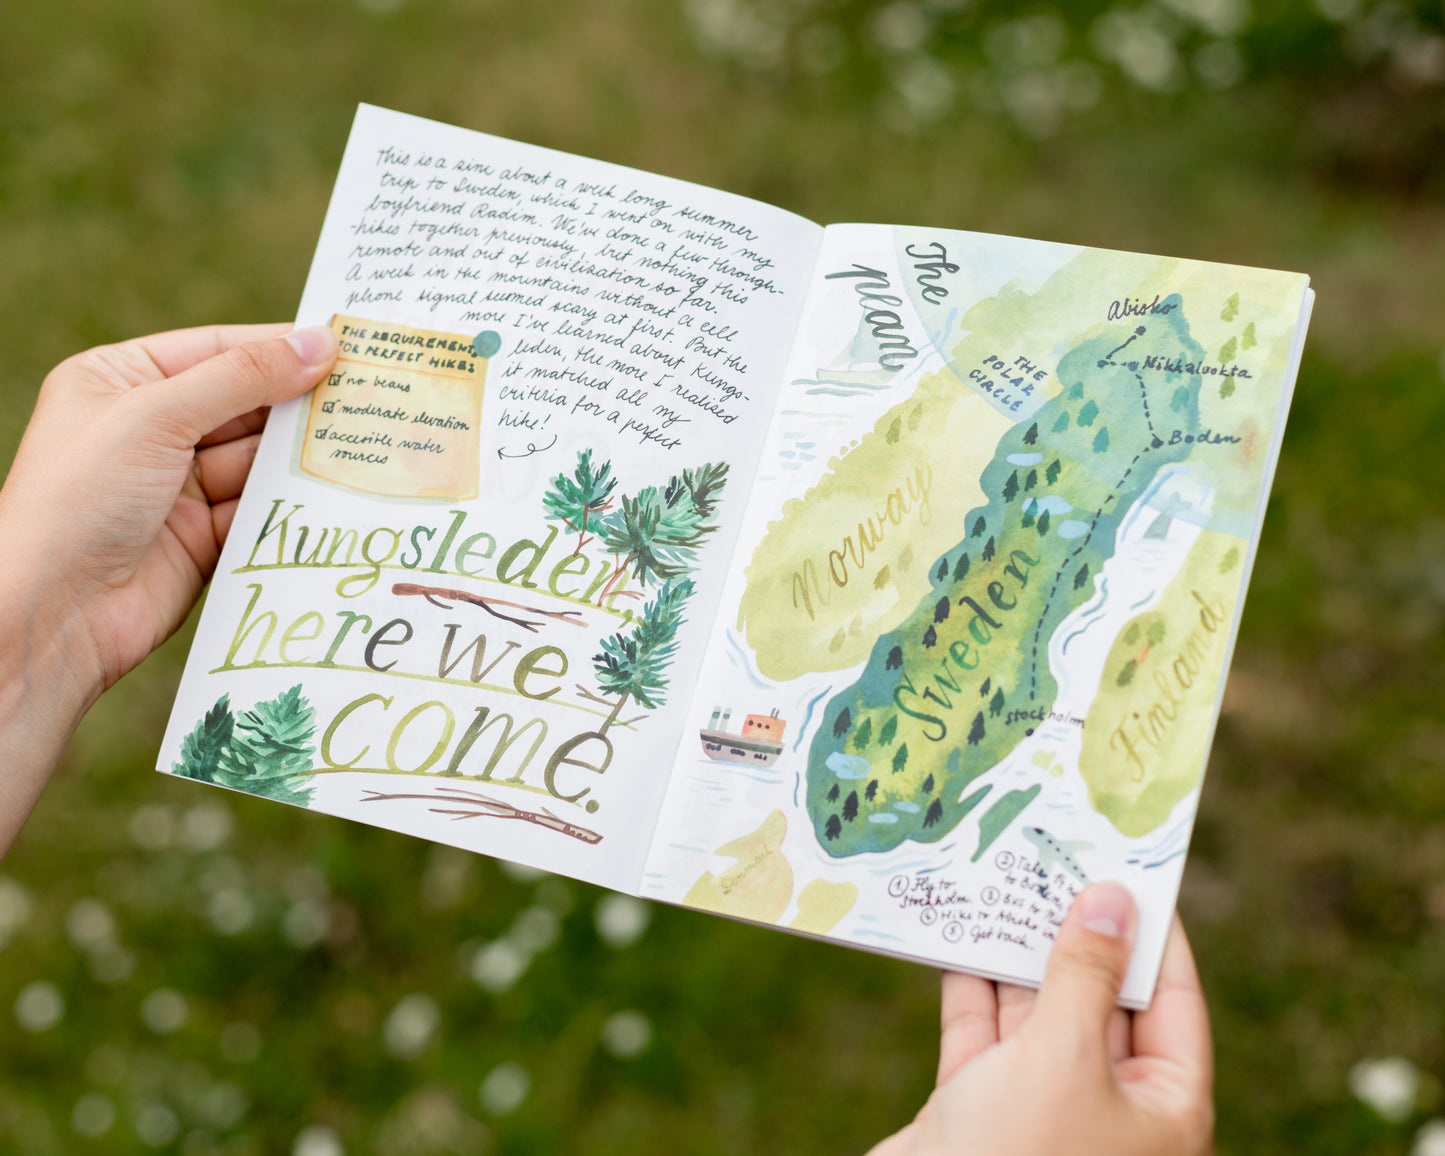 This is a zine about a week long summer
trip to Sweden, which I went on with my
boyfriend Radim. We've done a few through-
-hikes together previously, but nothing this
remote and out of civilization so far.
A week in the mountains without a cell
phone signal seemed scary at first. But the
more I've learned about Kungs-
leden, the more I realised
it matched all my
criteria for a perfect
hike!
THE REQUIREMENTS
FOR PERFECT HIKES
no bears
moderate elevation
accesible water
sources
Kungsleden,
here we
come.
The
plan
THE
POLAR
CIRCLE
Abisko
Nikkaluokta
Boden
Norway
Sweden
Finland
Stockholm
Denmark
1 Fly to
Stockholm.
2 Take
to Boden
3 Bus to
4 Hike to Abisko
5 Get back.